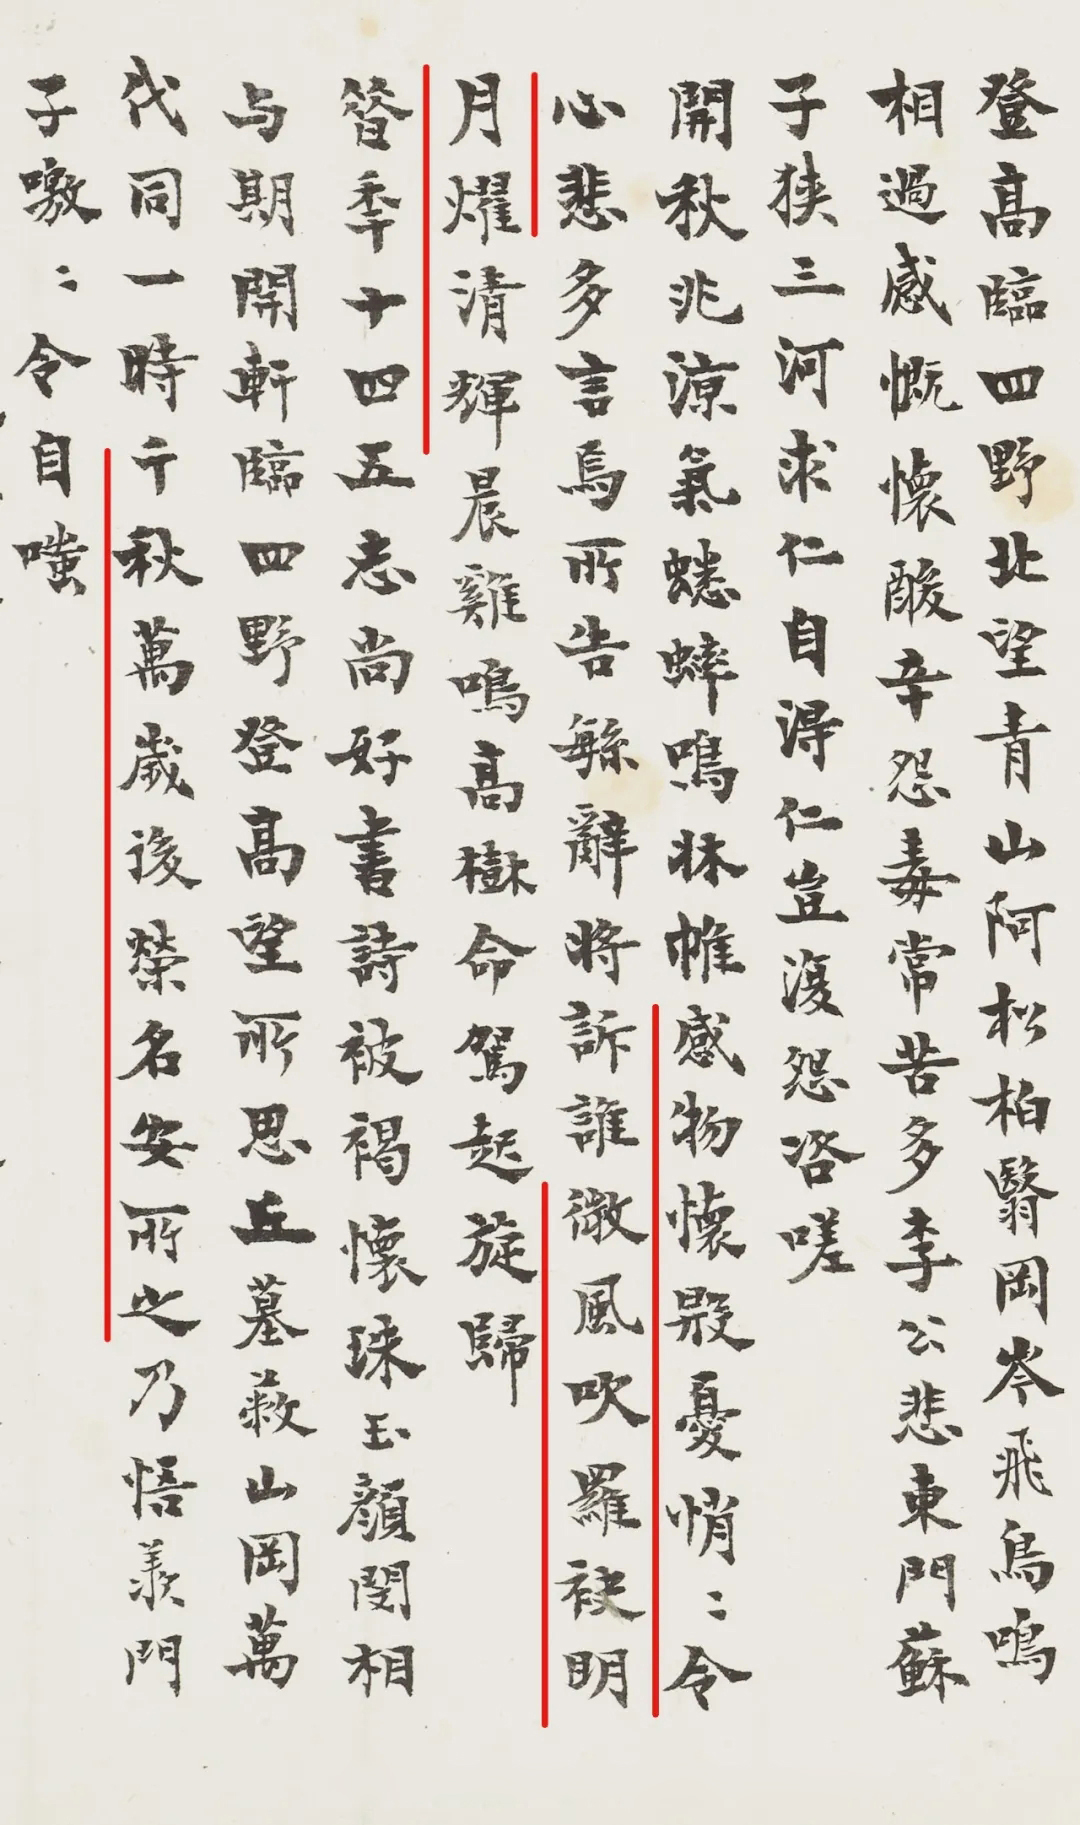 登高臨四野北望青山阿松柏翳岡岑飛鳥鳴
相過感慨懷酸辛怨毒常苦多李公悲東門蘇
子狹三河求仁自得仁豈復怨咨嗟
開秋兆涼氣蟋蟀鳴牀帷感物懷殷憂悄〻令
心悲多言焉所告繇辭將訴誰微風吹羅袂明
月燿清輝晨雞鳴高樹命駕起旋歸
昔年十四五志尚好書詩被褐懷珠玉顏閔相
与期開軒臨四野登高望所思丘墓蔽山岡萬
代同一時千秋萬歲後榮名安所之乃悟羨門
子噭〻令自嗤